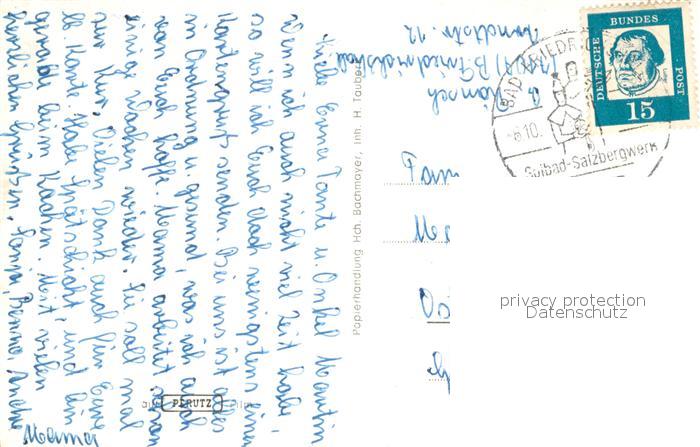 Liebe Erna, Tante u. Onkel Martin
Wenn ich auch nicht viel Zeit habe,
so will ich Euch doch wenigstens einen
Kartengruß senden. Bei uns ist alles
in Ordnung u. gesund, was ich auch
von Euch hoffe. Mama arbeitet schon
einige Wochen wieder. Sie soll mal
zur Kur. Vielen Dank auch für Eure
lb. Karte. Habe Spätschicht und bin
gerade beim Kochen. Mit vielen
herzlichen Grüßen
Mama
Papierhandlung Hch. Bachmayer, Inh. H. Tauber
PERUTZ
B. Friedrichshall
12
BAD FRIEDRICH
-6.10.
Solbad-Salzbergwerk
DEUTSCHE
BUNDES
POST
15
Fam
privacy protection
Datenschutz